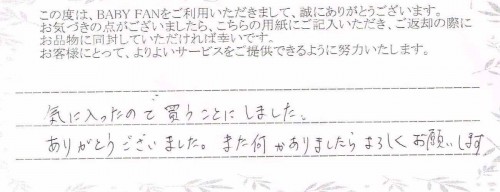 この度は、BABY FANをご利用いただきまして、誠にありがとうございます。
お気づきの点がございましたら、こちらの用紙にご記入いただき、ご返却の際に
お品物に同封していただければ幸いです。
お客様にとって、よりよいサービスをご提供できるように努力いたします。
気に入ったので買うことにしました。
ありがとうございました。また何かありましたらよろしくお願いします